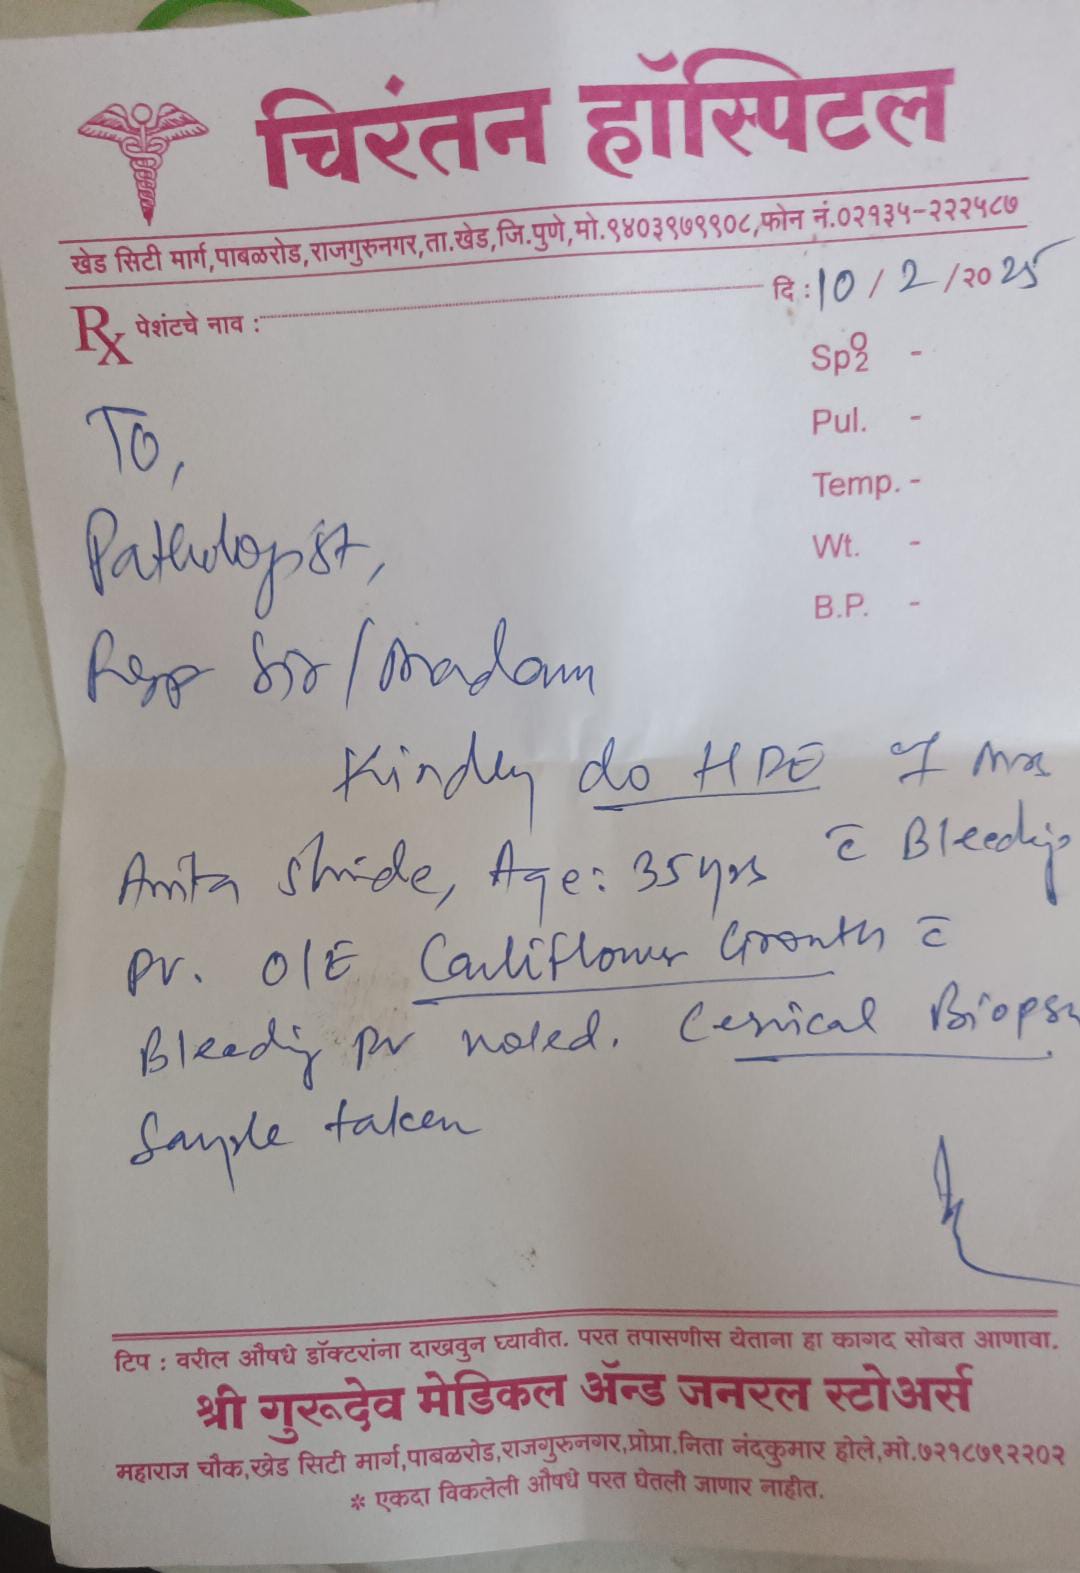 चिरंतन हॉस्पिटल
खेड सिटी मार्ग,पाबळरोड,राजगुरुनगर,ता.खेड,जि.पुणे,मो.९४०३९७९९०८,फोन नं.०२१३५-२२२५८७
दि : 10 / 2 / २० 25
Rx पेशंटचे नाव :
SpO2 -
Pul. -
Temp. -
Wt. -
B.P. -
To,
Pathologist,
Resp Sir / Madam
Kindly do HPE of Mrs
Anita Shinde, Age: 35 yrs c̄ Bleeding
PV. O/E Cauliflower Growth c̄
Bleeding PV noted. Cervical Biopsy
Sample taken
टिप : वरील औषधे डॉक्टरांना दाखवुन घ्यावीत. परत तपासणीस येताना हा कागद सोबत आणावा.
श्री गुरूदेव मेडिकल ॲन्ड जनरल स्टोअर्स
महाराज चौक,खेड सिटी मार्ग,पाबळरोड,राजगुरुनगर,प्रोप्रा.निता नंदकुमार होले,मो.७२१८७९२२०२
* एकदा विकलेली औषधे परत घेतली जाणार नाहीत.